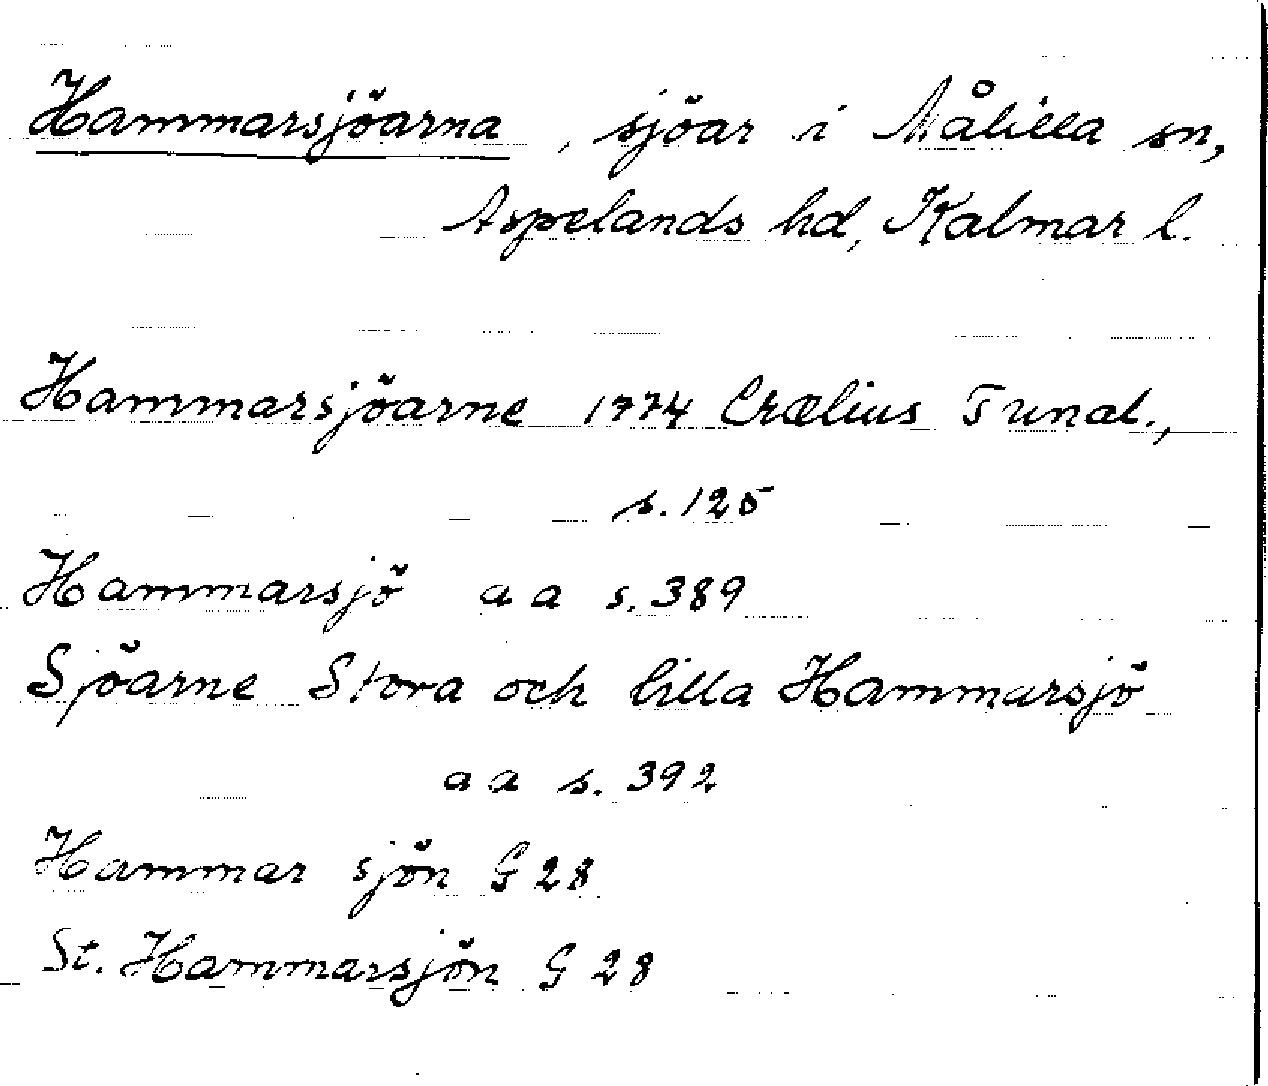 Hammarsjöarna, sjöar i Målilla sn,
Aspelands hd, Kalmar l.
Hammarsjöarne 1774 Crælius Tunal.,
s. 125
Hammarsjö a a s. 389
Sjöarne Stora och lilla Hammarsjö
a a s. 392
Hammar sjön G 28
St. Hammarsjön G 28